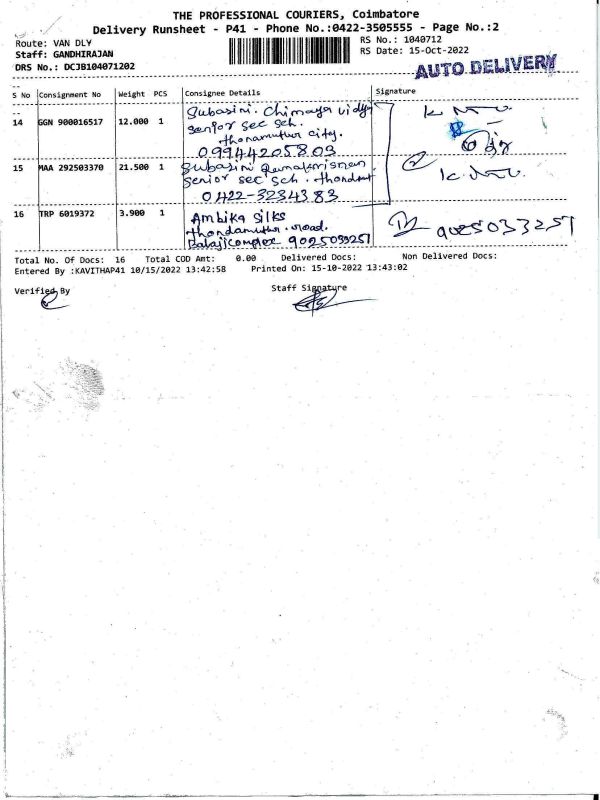 THE PROFESSIONAL COURIERS, Coimbatore
Delivery Runsheet - P41 - Phone No.:0422-3505555 - Page No.:2
Route: VAN DLY
RS No.: 1040712
Staff: GANDHIRAJAN
RS Date: 15-Oct-2022
DRS No.: DCJB104071202
AUTO DELIVERY
S No Consignment No Weight PCS Consignee Details Signature
14 GGN 900016517 12.000 1 Subasini. Chimaya vidya
senior sec sch.
city.
09944205803
15 MAA 292503370 21.500 1 Subasini
senior sec sch.
0422-3234383
16 TRP 6019372 3.900 1 Ambika Silks
road.
9025033251
9025033251
Total No. Of Docs: 16 Total COD Amt: 0.00 Delivered Docs: Non Delivered Docs:
Entered By :KAVITHAP41 10/15/2022 13:42:58 Printed On: 15-10-2022 13:43:02
Verified By Staff Signature